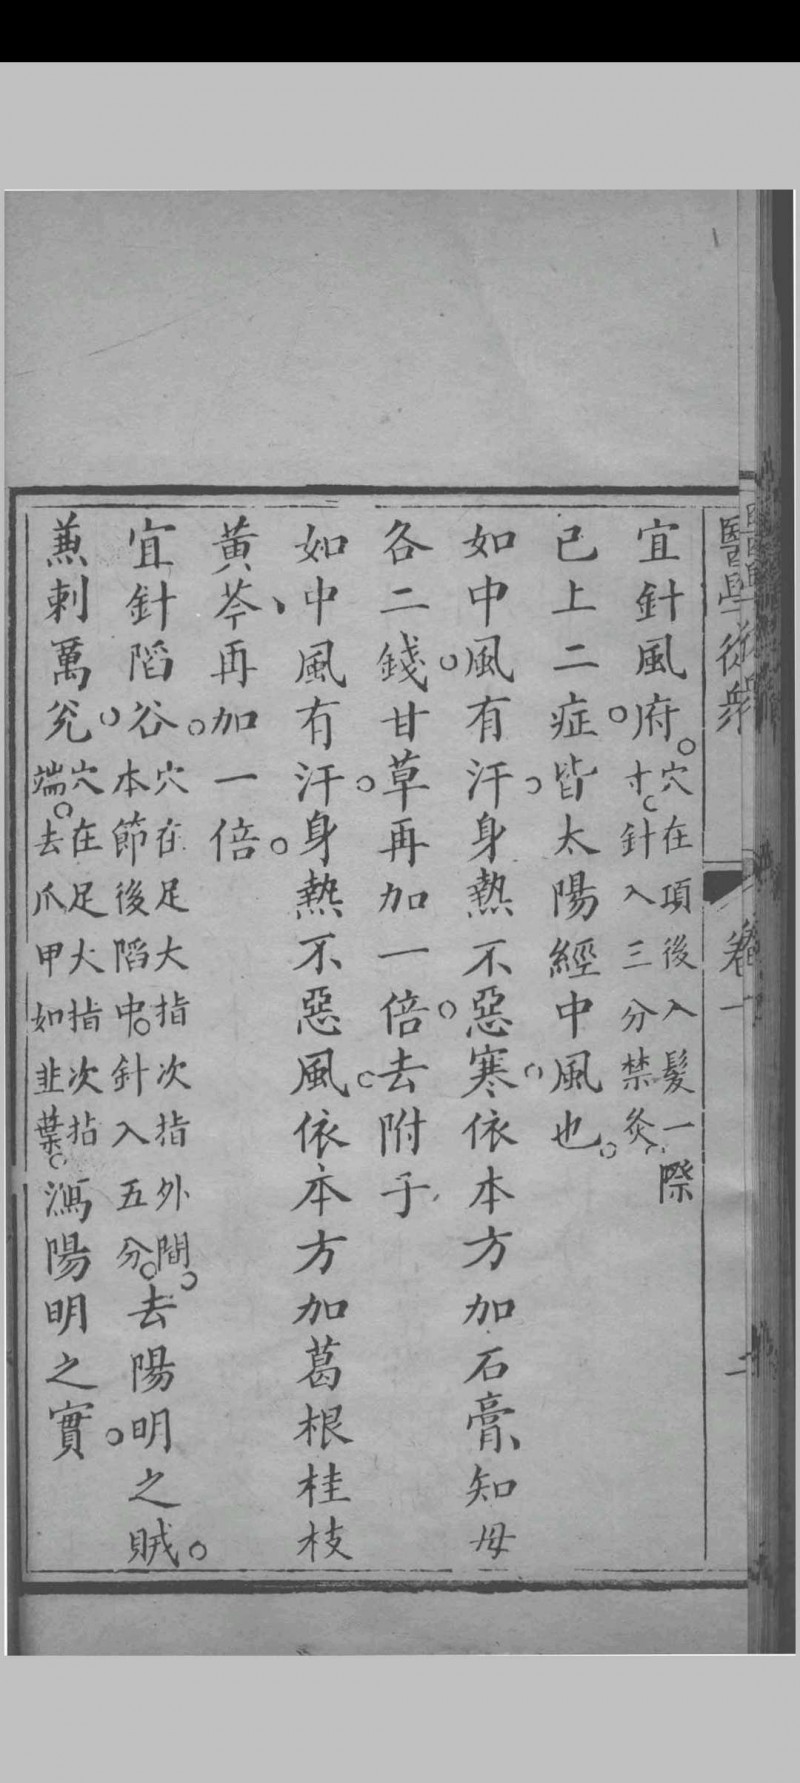 醫學從眾 卷一 二
宜針風府。穴在項後入髮一際寸。針入三分禁灸。
已上二症。皆太陽經中風也。
如中風有汗。身熱不惡寒。依本方加石膏、知母
各二錢。甘草再加一倍。去附子
如中風有汗。身熱不惡風。依本方加葛根桂枝
黃芩、再加一倍。
宜針陷谷。穴在足大指次指外間。本節後陷中。針入五分。去陽明之賊。
兼刺萬兊。穴在足大指次指端。去爪甲如韭葉。瀉陽明之實。